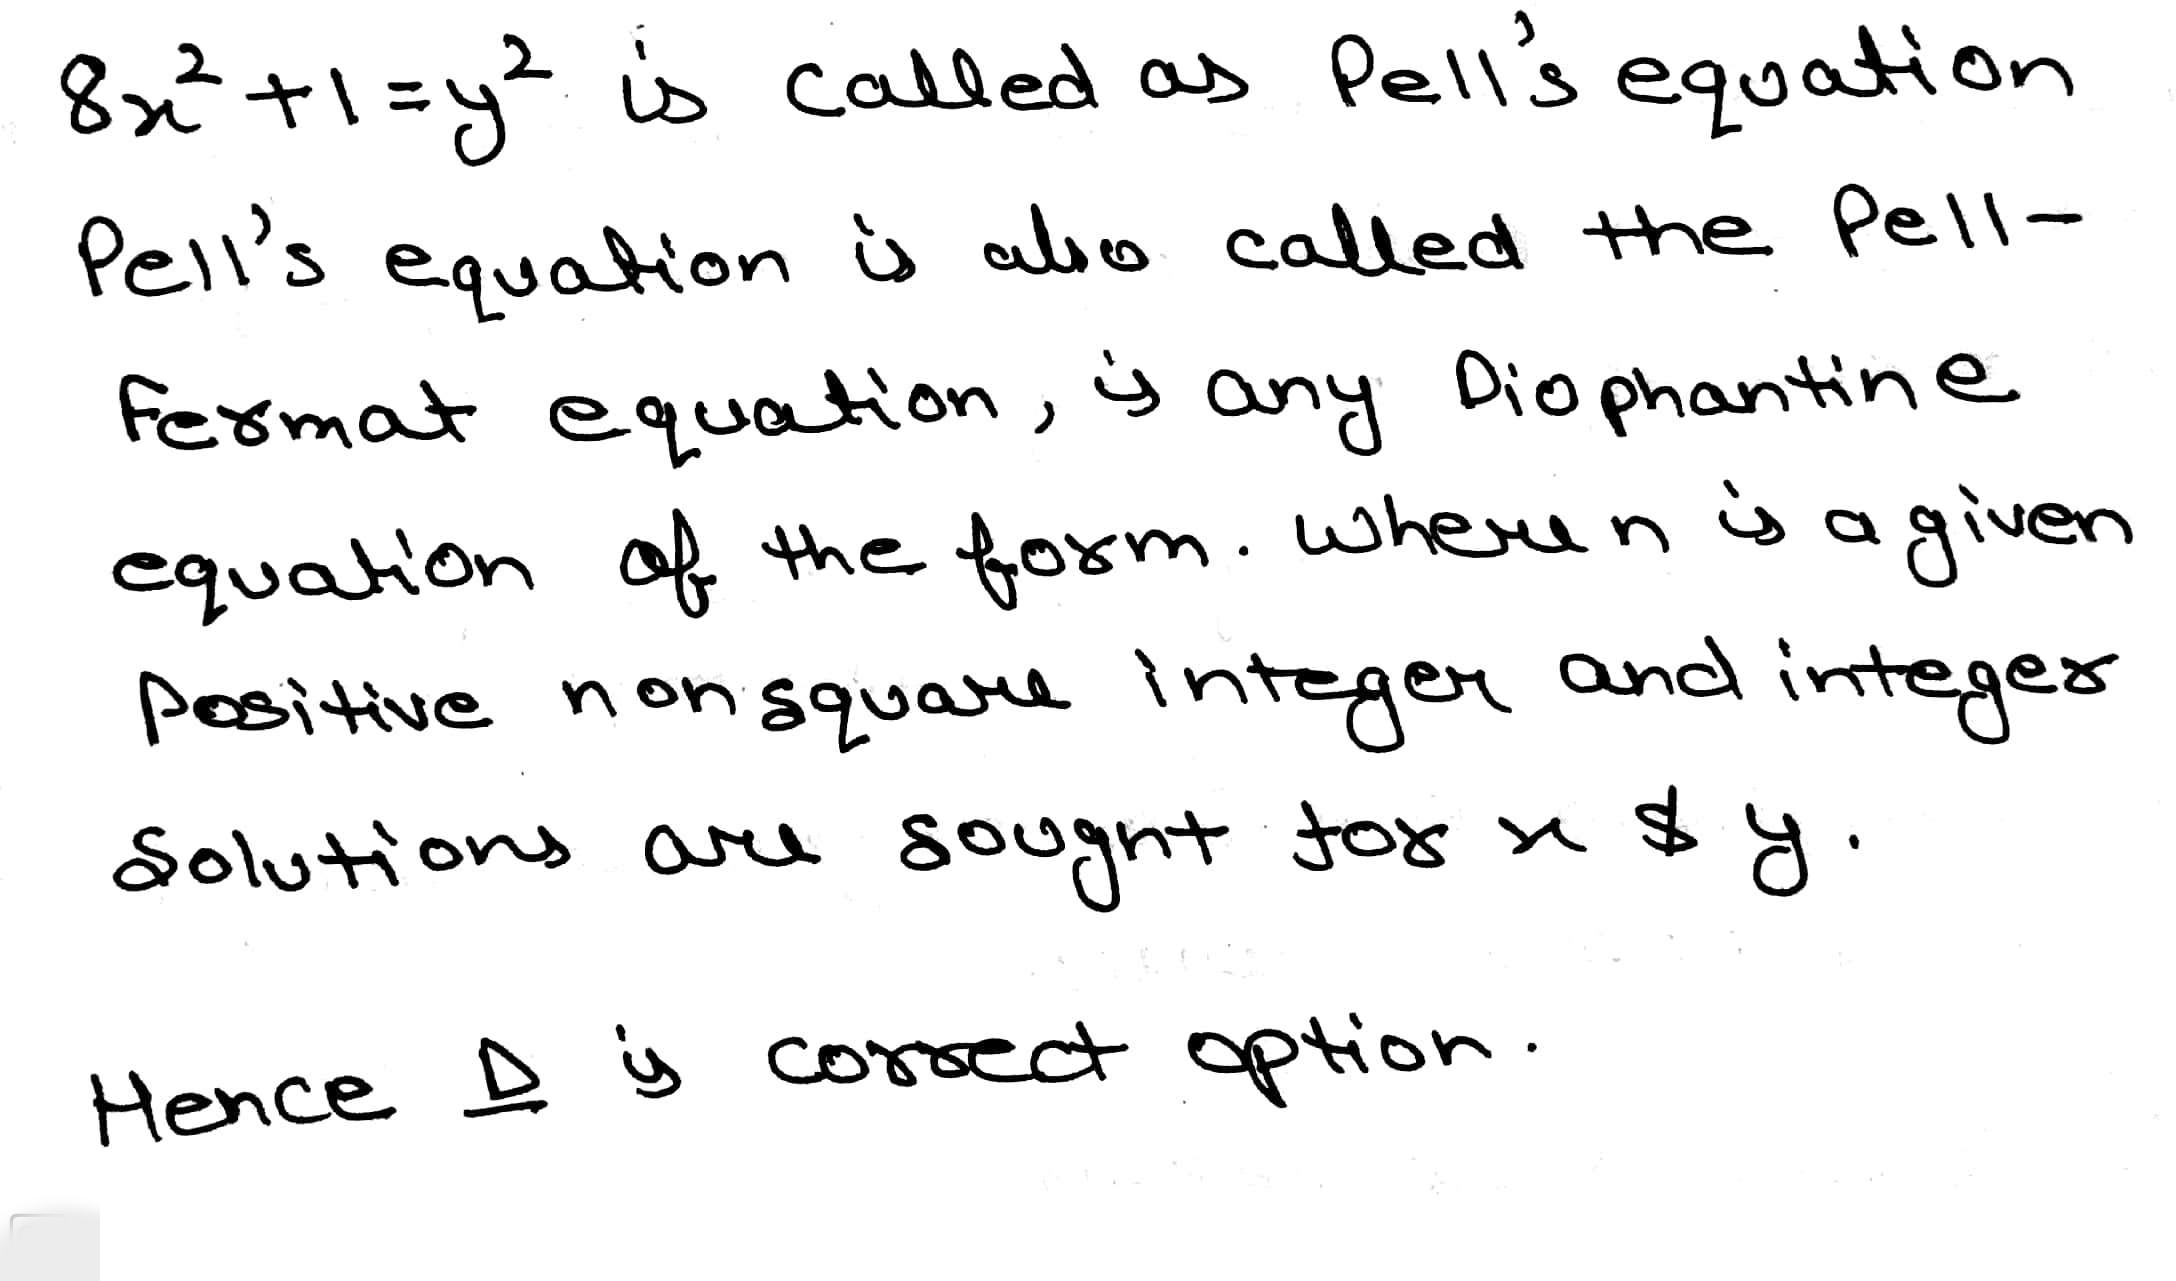 8x² + 1 = y² is called as Pell's equation
Pell's equation is also called the Pell-
Fermat equation, is any Diophantine
equation of the form. where n is a given
positive nonsquare integer and integer
solutions are sought for x & y.
Hence D is correct option.